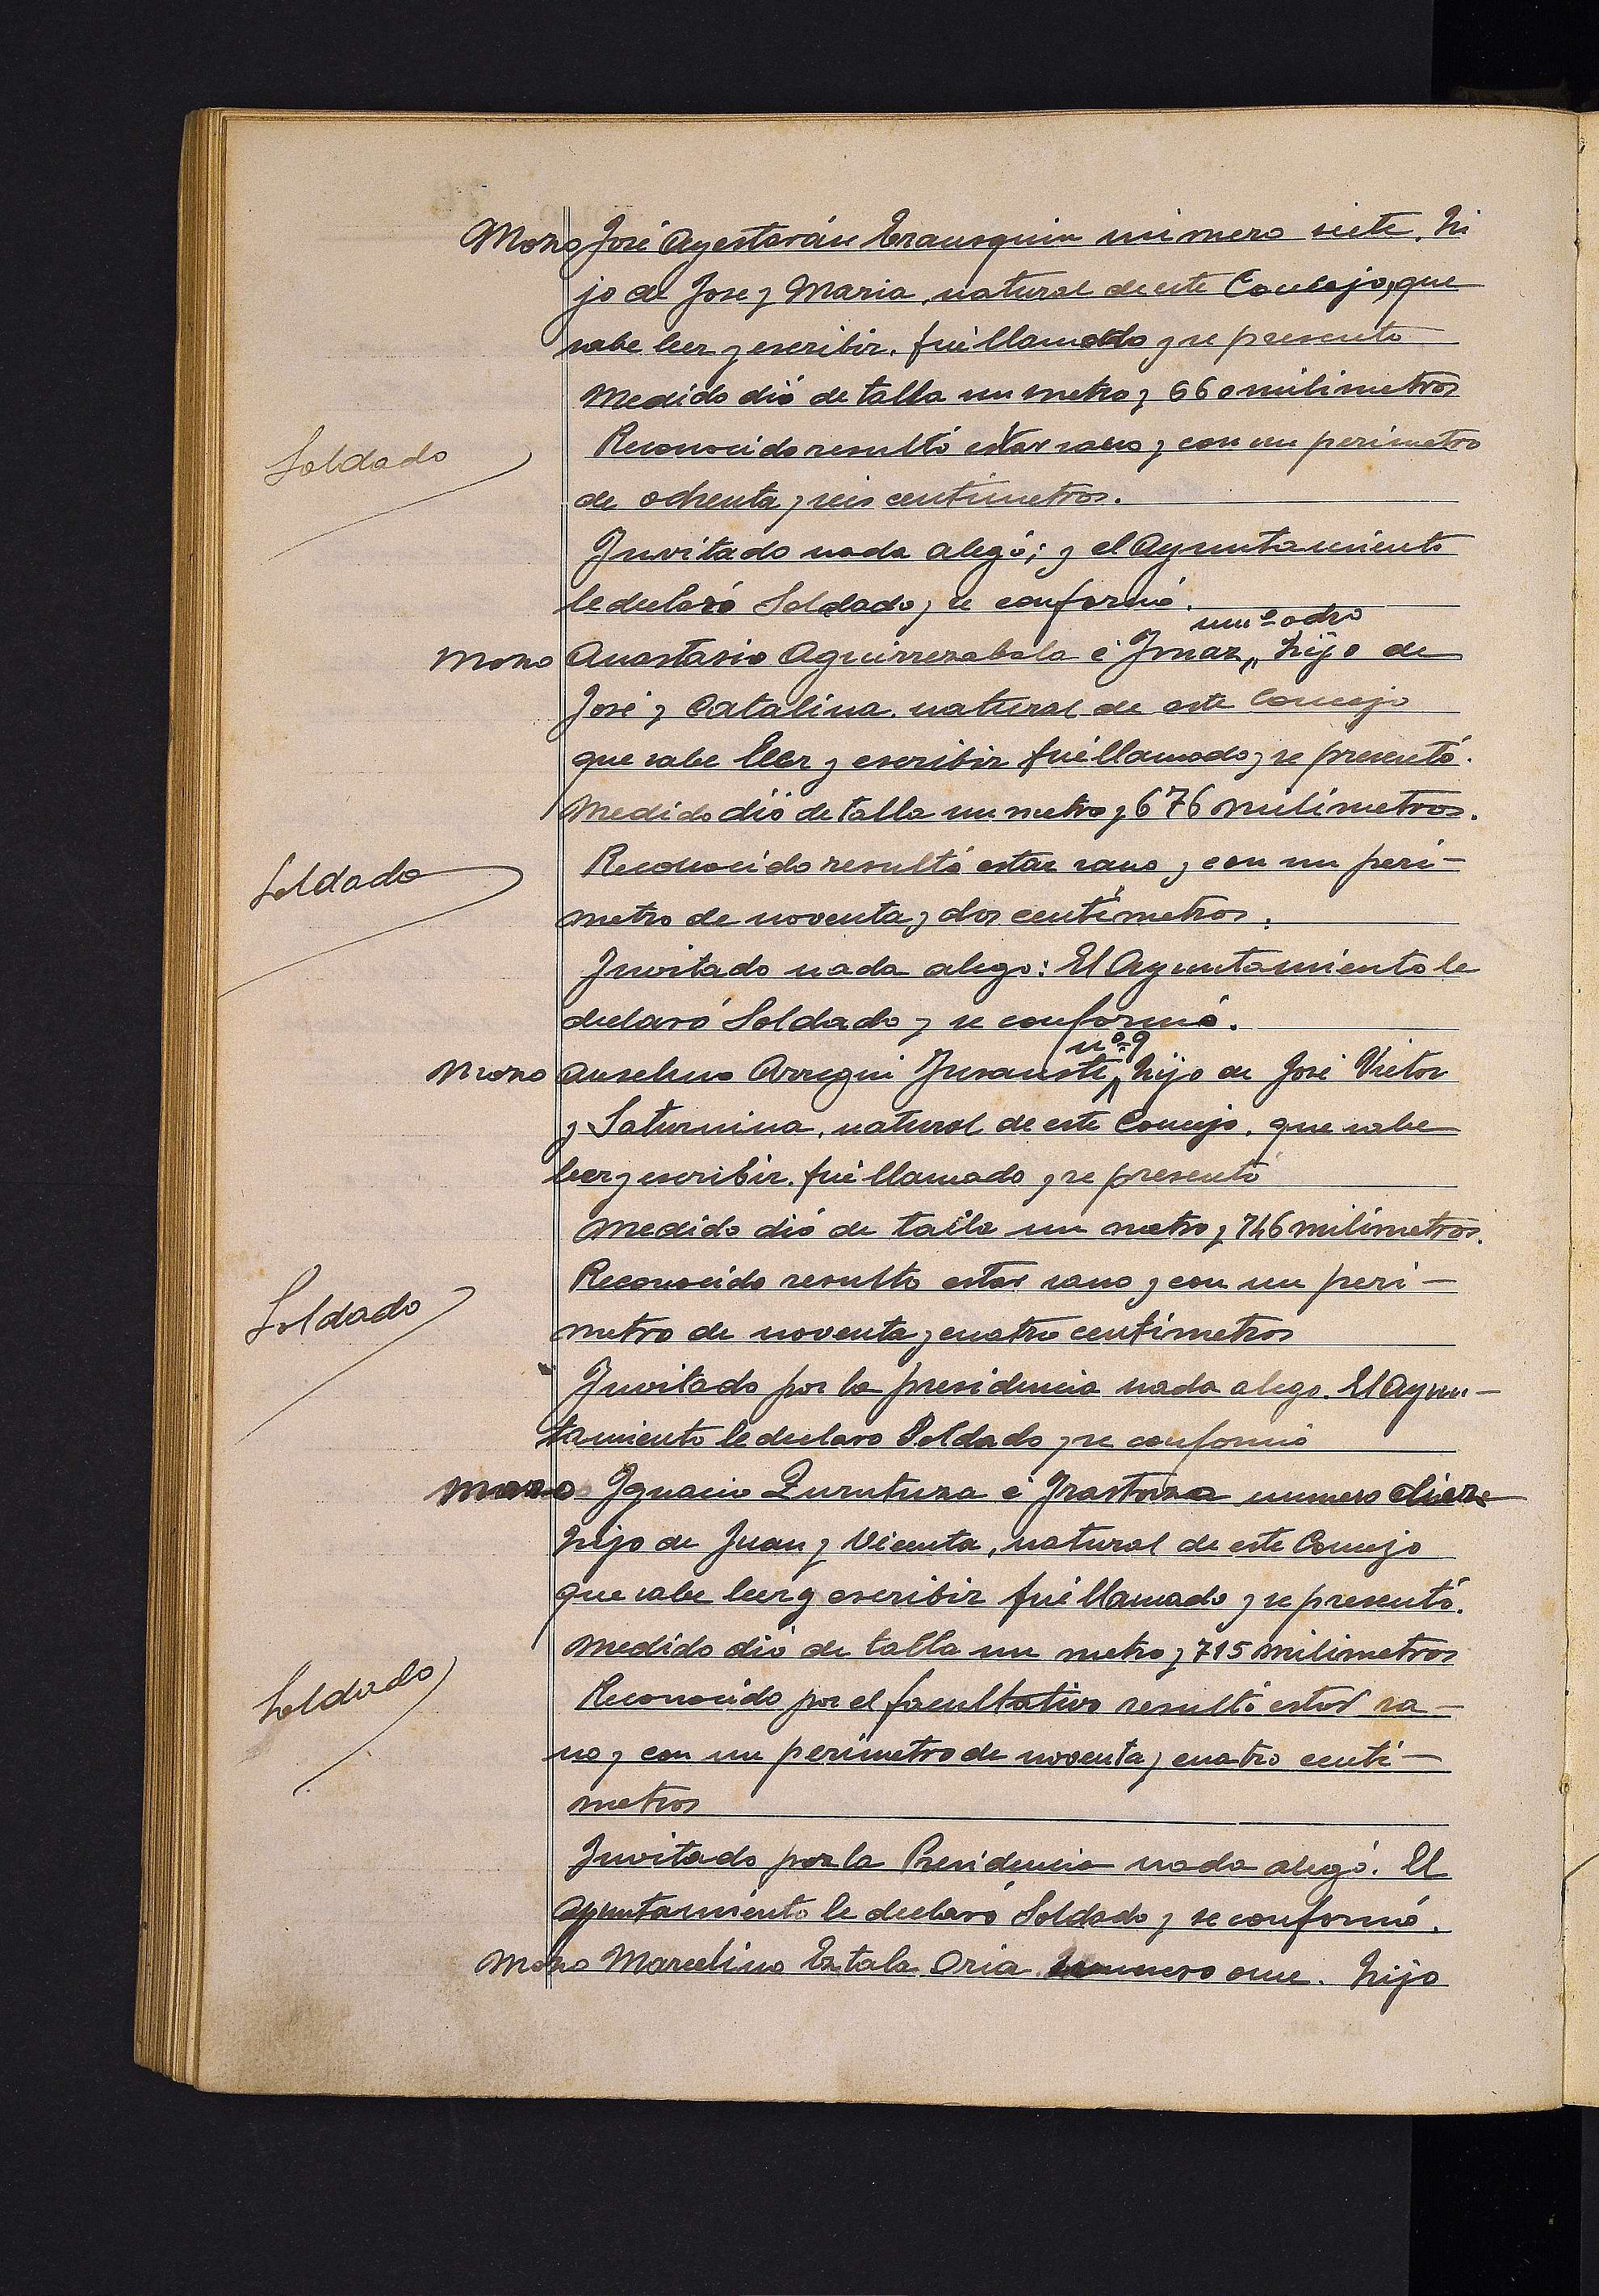 Mozo José Ayestarán Erausquin número siete, hi
jo de Jose y Maria, natural de este Concejo, que
sabe leer y escribir, fué llamado y se presento
Medido dió de talla un metro y 660 milimetros
Reconocido resultó estar sano y con un perimetro
Soldado
de ochenta y seis centímetros.
Invitado nada alegó; y el Ayuntamiento
le declaró Soldado y se conformó.
num.º ocho
Mozo Anastasio Aguirrezabala é Imaz, hijo de
José y Catalina, natural de este Concejo
que sabe leer y escribir fué llamado y se presentó.
Medido dió de talla un metro y 676 milimetros.
Reconocido resultó estar sano y con un peri-
Soldado
metro de noventa y dos centímetros.
Invitado nada alego: El Ayuntamiento le
declaró Soldado y se conformó.
nº 9
Mozo Anselmo Arregui Insausti, hijo de José Victor
y Saturnina, natural de este Concejo, que sabe
leer y escribir, fué llamado y se presentó
Medido dió de talla un metro y 746 milímetros.
Reconocido resulto estar sano y con un peri-
Soldado
metro de noventa y cuatro centímetros
Invitado por la presidencia nada alego. El Ayun-
tamiento le declaro Soldado y se conformó
Mozo Ignacio Zurutuza é Irastorza numero diez
hijo de Juan y Vicenta, natural de este Concejo
que sabe leer y escribir fué llamado y se presentó.
Medido dió de talla un metro y 715 milimetros
Soldado
Reconocido por el facultativo resultó estar sa-
no y con un perímetro de noventa y cuatro centí-
metros
Invitado por la Presidencia nada alegó. El
Ayuntamiento le declaró Soldado y se conformó.
Mozo Marcelino Eztala Oria numero once. hijo